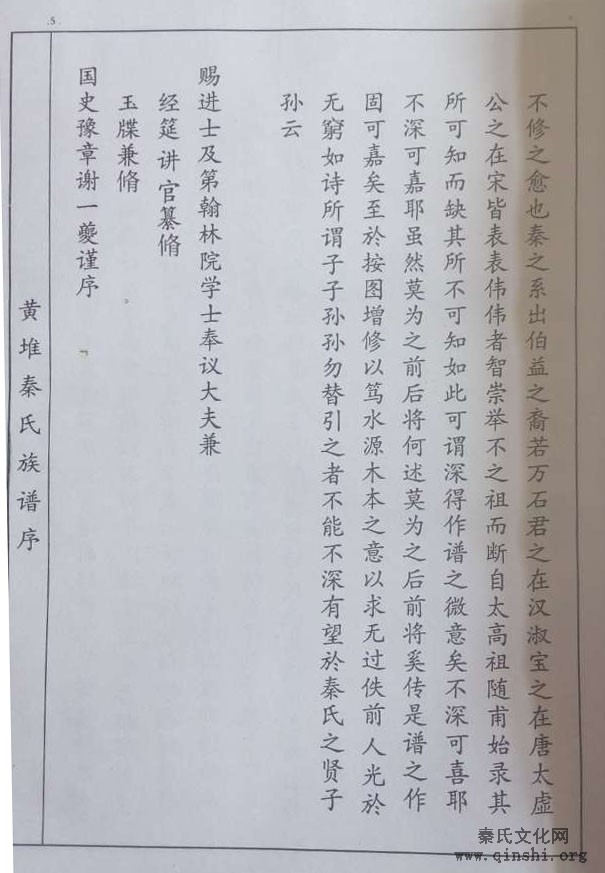 不修之愈也秦之系出伯益之裔若万石君之在汉淑宝之在唐太虚
公之在宋皆表表伟伟者智崇举不之祖而断自太高祖随甫始录其
所可知而缺其所不可知如此可谓深得作谱之微意矣不深可喜耶
不深可嘉耶虽然莫为之前后将何述莫为之后前将奚传是谱之作
固可嘉矣至於按图增修以笃水源木本之意以求无过佚前人光於
无窮如诗所谓子子孙孙勿替引之者不能不深有望於秦氏之贤子
孙云
赐进士及第翰林院学士奉议大夫兼
经筵讲官纂脩
玉牒兼脩
国史豫章谢一夔谨序
黄堆秦氏族谱序
.5.
秦氏文化网
www.qinshi.org